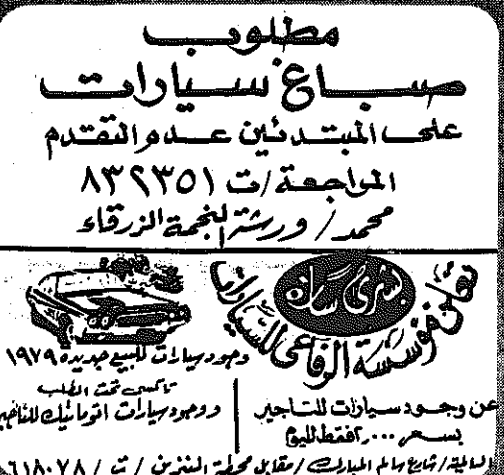 مطلوب
صباغ سيارات
على المبتدئين عدم التقدم
المراجعة / ت ٨٣٢٣٥١
محمد / ورشة النجمة الزرقاء
بشرى سارة
تعلن مؤسسة الرفاعي للسيارات
وجود سيارات للبيع جديده ١٩٧٩
تاكسي تحت الطلب
ووجود سيارات اتوماتيك للتأجير
عن وجود سيارات للتأجير
بسعر فقط لليوم
السالمية / شارع سالم المبارك / مقابل محطة البنزين / ت / ٦١٨٠٧٨